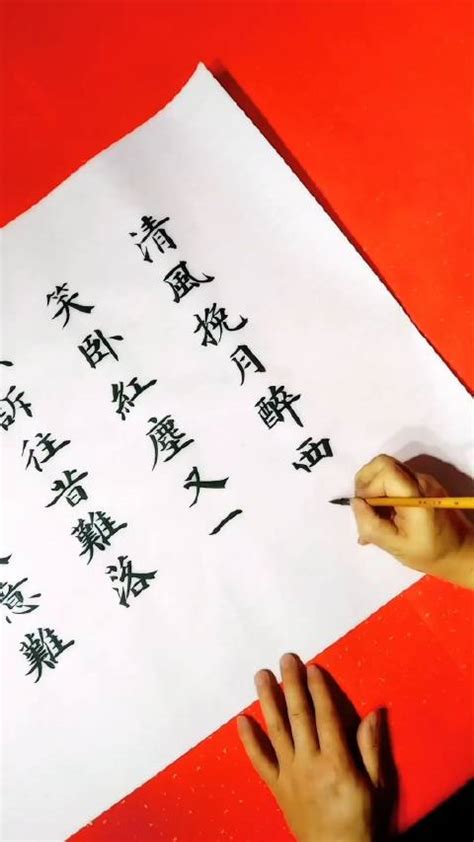 清風挽月醉西
笑卧紅塵又一
訴往昔難落
意難